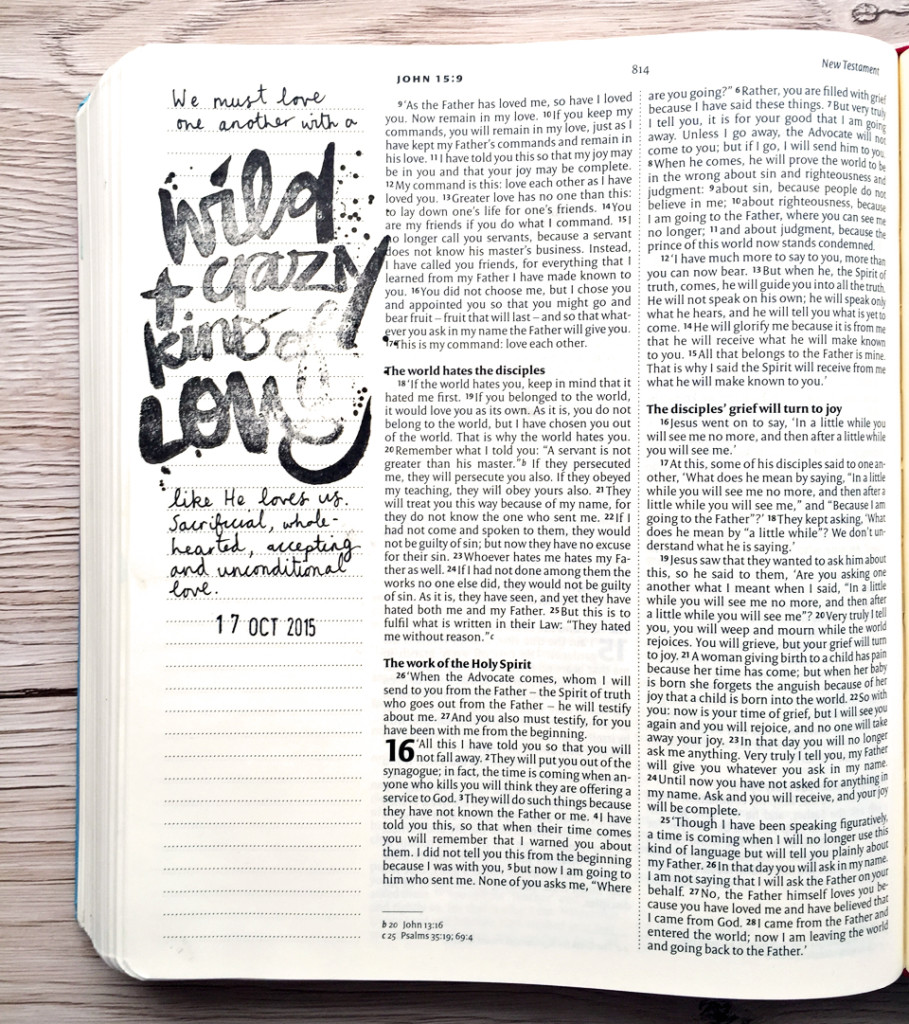 JOHN 15:9
814
New Testament
We must love
one another with a
wild
+ crazy
kind of
LOVE
like He loves us.
Sacrificial, whole-
hearted, accepting
and unconditional
love.
17 OCT 2015
9 ‘As the Father has loved me, so have I loved
you. Now remain in my love. 10 If you keep my
commands, you will remain in my love, just as I
have kept my Father’s commands and remain in
his love. 11 I have told you this so that my joy may
be in you and that your joy may be complete.
12 My command is this: love each other as I have
loved you. 13 Greater love has no one than this:
to lay down one’s life for one’s friends. 14 You
are my friends if you do what I command. 15 I
no longer call you servants, because a servant
does not know his master’s business. Instead,
I have called you friends, for everything that I
learned from my Father I have made known to
you. 16 You did not choose me, but I chose you
and appointed you so that you might go and
bear fruit – fruit that will last – and so that what-
ever you ask in my name the Father will give you.
17 This is my command: love each other.
The world hates the disciples
18 ‘If the world hates you, keep in mind that it
hated me first. 19 If you belonged to the world,
it would love you as its own. As it is, you do not
belong to the world, but I have chosen you out
of the world. That is why the world hates you.
20 Remember what I told you: “A servant is not
greater than his master.”b If they persecuted
me, they will persecute you also. If they obeyed
my teaching, they will obey yours also. 21 They
will treat you this way because of my name, for
they do not know the one who sent me. 22 If I
had not come and spoken to them, they would
not be guilty of sin; but now they have no excuse
for their sin. 23 Whoever hates me hates my Fa-
ther as well. 24 If I had not done among them the
works no one else did, they would not be guilty
of sin. As it is, they have seen, and yet they have
hated both me and my Father. 25 But this is to
fulfil what is written in their Law: “They hated
me without reason.”c
The work of the Holy Spirit
26 ‘When the Advocate comes, whom I will
send to you from the Father – the Spirit of truth
who goes out from the Father – he will testify
about me. 27 And you also must testify, for you
have been with me from the beginning.
16 ‘All this I have told you so that you will
not fall away. 2 They will put you out of the
synagogue; in fact, the time is coming when an-
yone who kills you will think they are offering a
service to God. 3 They will do such things because
they have not known the Father or me. 4 I have
told you this, so that when their time comes
you will remember that I warned you about
them. I did not tell you this from the beginning
because I was with you, 5 but now I am going to
him who sent me. None of you asks me, “Where
b 20 John 13:16
c 25 Psalms 35:19; 69:4
are you going?” 6 Rather, you are filled with grief
because I have said these things. 7 But very truly
I tell you, it is for your good that I am going
away. Unless I go away, the Advocate will not
come to you; but if I go, I will send him to you.
8 When he comes, he will prove the world to be
in the wrong about sin and righteousness and
judgment: 9 about sin, because people do not
believe in me; 10 about righteousness, because
I am going to the Father, where you can see me
no longer; 11 and about judgment, because the
prince of this world now stands condemned.
12 ‘I have much more to say to you, more than
you can now bear. 13 But when he, the Spirit of
truth, comes, he will guide you into all the truth.
He will not speak on his own; he will speak only
what he hears, and he will tell you what is yet to
come. 14 He will glorify me because it is from me
that he will receive what he will make known
to you. 15 All that belongs to the Father is mine.
That is why I said the Spirit will receive from me
what he will make known to you.’
The disciples’ grief will turn to joy
16 Jesus went on to say, ‘In a little while you
will see me no more, and then after a little while
you will see me.’
17 At this, some of his disciples said to one an-
other, ‘What does he mean by saying, “In a little
while you will see me no more, and then after a
little while you will see me,” and “Because I am
going to the Father”?’ 18 They kept asking, ‘What
does he mean by “a little while”? We don’t un-
derstand what he is saying.’
19 Jesus saw that they wanted to ask him about
this, so he said to them, ‘Are you asking one
another what I meant when I said, “In a little
while you will see me no more, and then after
a little while you will see me”? 20 Very truly I tell
you, you will weep and mourn while the world
rejoices. You will grieve, but your grief will turn
to joy. 21 A woman giving birth to a child has pain
because her time has come; but when her baby
is born she forgets the anguish because of her
joy that a child is born into the world. 22 So with
you: now is your time of grief, but I will see you
again and you will rejoice, and no one will take
away your joy. 23 In that day you will no longer
ask me anything. Very truly I tell you, my Father
will give you whatever you ask in my name.
24 Until now you have not asked for anything in
my name. Ask and you will receive, and your joy
will be complete.
25 ‘Though I have been speaking figuratively,
a time is coming when I will no longer use this
kind of language but will tell you plainly about
my Father. 26 In that day you will ask in my name.
I am not saying that I will ask the Father on your
behalf. 27 No, the Father himself loves you be-
cause you have loved me and have believed that
I came from God. 28 I came from the Father and
entered the world; now I am leaving the world
and going back to the Father.’